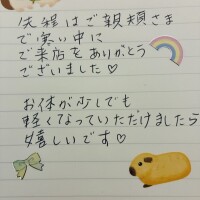 先程はご親類さま
で寒い中に
ご来店をありがとう
ございました♡
お体が少しでも
軽くなっていただけましたら
嬉しいです♡